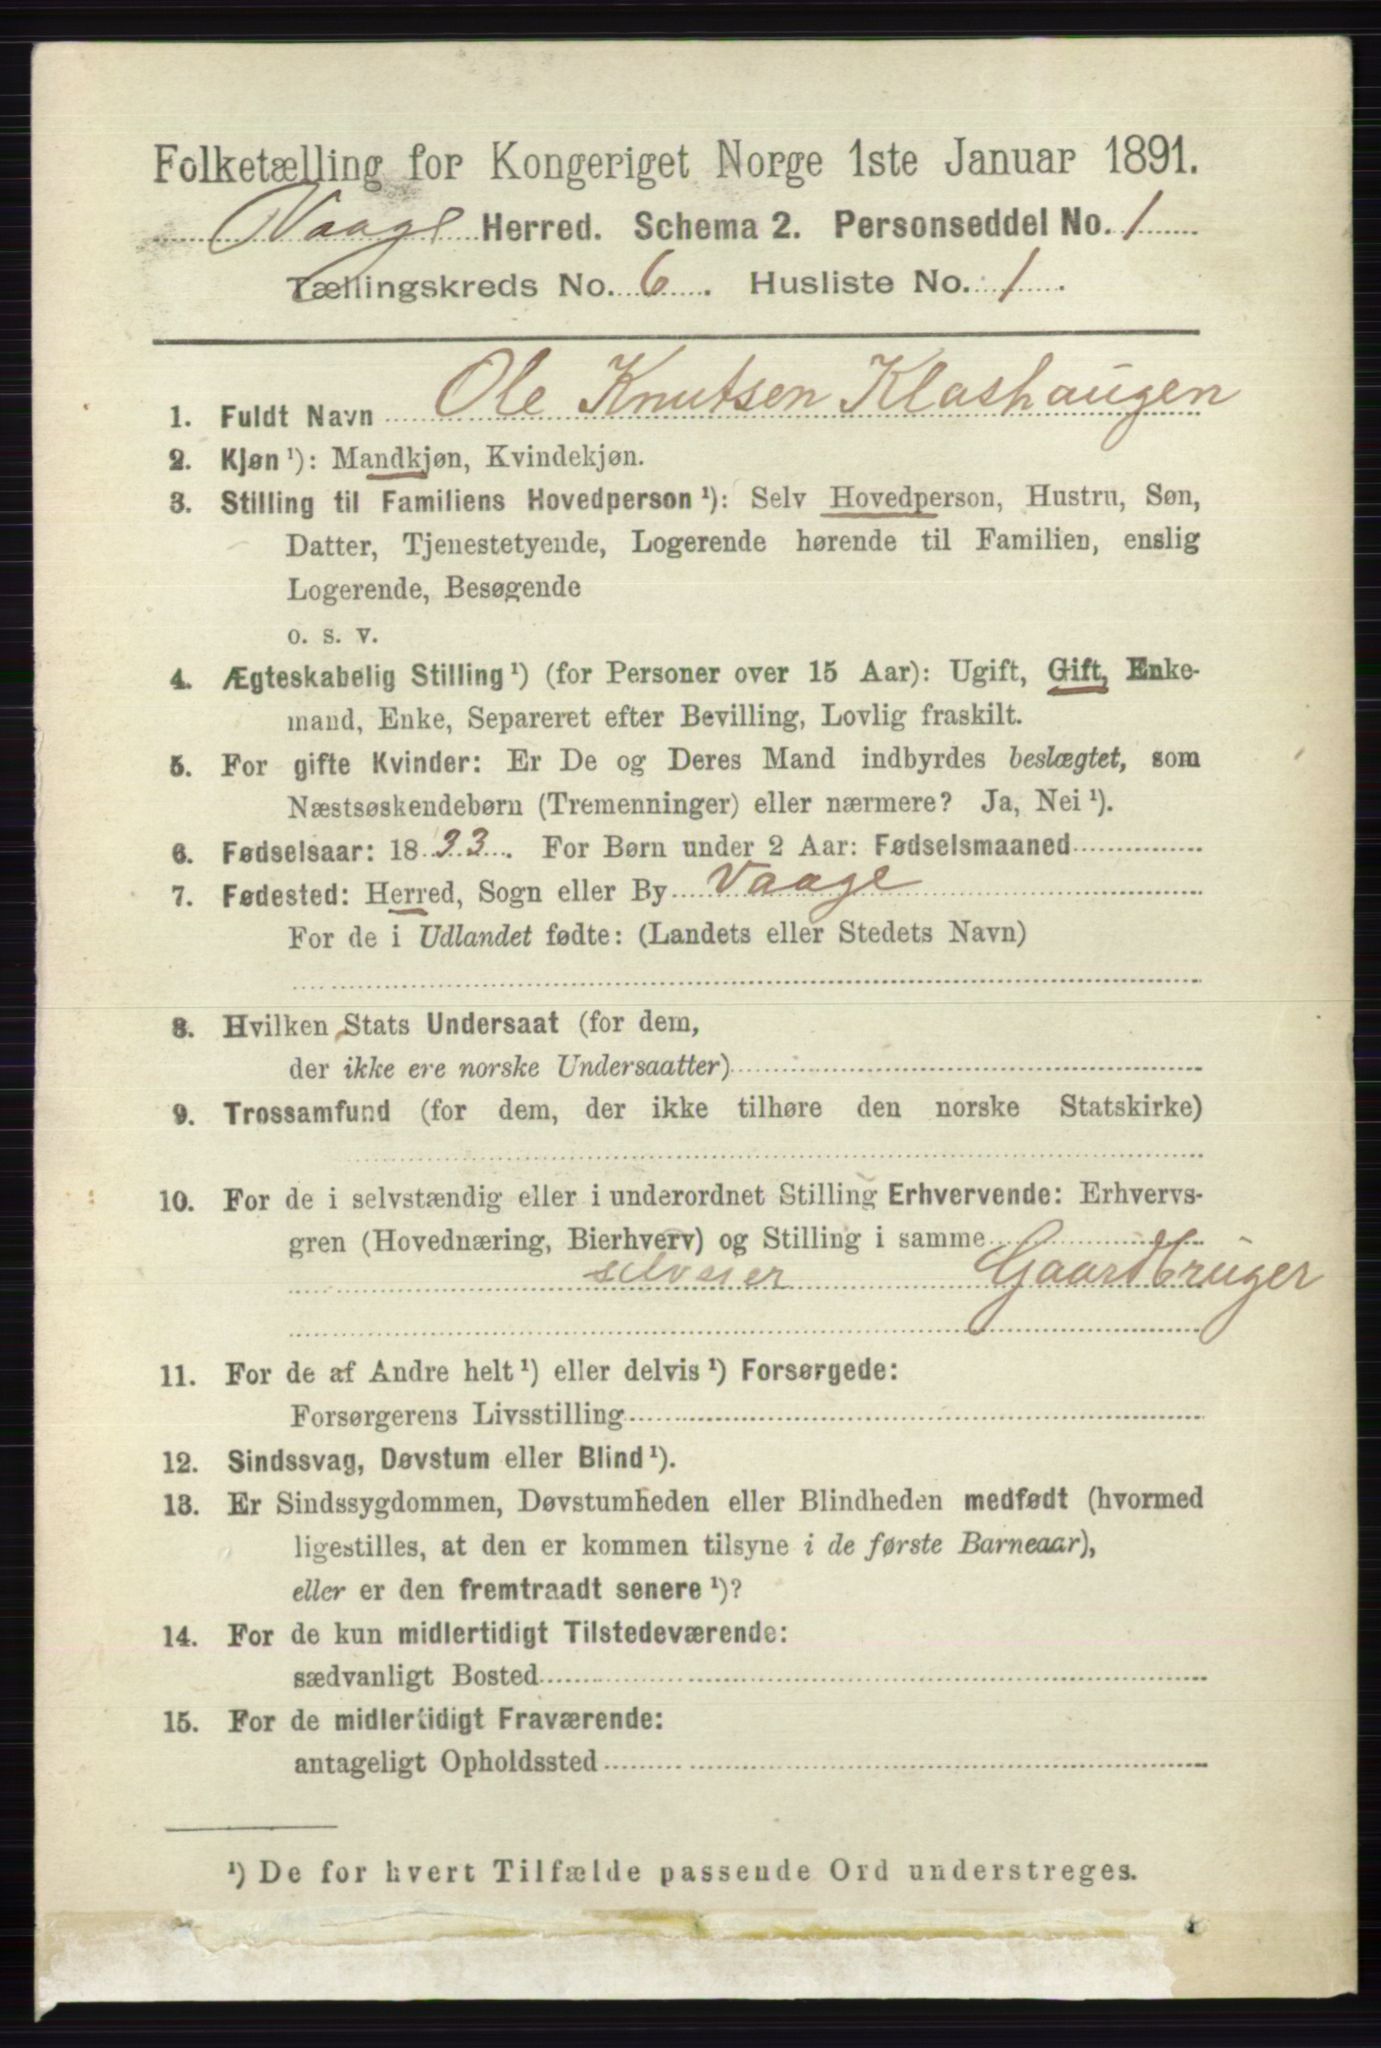 Folketælling for Kongeriget Norge 1ste Januar 1891.
Vaage Herred. Schema 2. Personseddel No. 1
Tællingskreds No. 6. Husliste No. 1.
1. Fuldt Navn Ole Knutsen Klashaugen
2. Kjøn ¹): Mandkjøn, Kvindekjøn.
3. Stilling til Familiens Hovedperson ¹): Selv Hovedperson, Hustru, Søn,
Datter, Tjenestetyende, Logerende hørende til Familien, enslig
Logerende, Besøgende
o. s. v.
4. Ægteskabelig Stilling ¹) (for Personer over 15 Aar): Ugift, Gift, Enke-
mand, Enke, Separeret efter Bevilling, Lovlig fraskilt.
5. For gifte Kvinder: Er De og Deres Mand indbyrdes beslægtet, som
Næstsøskendebørn (Tremenninger) eller nærmere? Ja, Nei ¹).
6. Fødselsaar: 1833. For Børn under 2 Aar: Fødselsmaaned
7. Fødested: Herred, Sogn eller By Vaage
For de i Udlandet fødte: (Landets eller Stedets Navn)
8. Hvilken Stats Undersaat (for dem,
der ikke ere norske Undersaatter)
9. Trossamfund (for dem, der ikke tilhøre den norske Statskirke)
10. For de i selvstændig eller i underordnet Stilling Erhvervende: Erhvervs-
gren (Hovednæring, Bierhverv) og Stilling i samme
selveier Gaardbruger
11. For de af Andre helt ¹) eller delvis ¹) Forsørgede:
Forsørgerens Livsstilling
12. Sindssvag, Døvstum eller Blind ¹).
13. Er Sindssygdommen, Døvstumheden eller Blindheden medfødt (hvormed
ligestilles, at den er kommen tilsyne i de første Barneaar),
eller er den fremtraadt senere ¹)?
14. For de kun midlertidigt Tilstedeværende:
sædvanligt Bosted
15. For de midlertidigt Fraværende:
antageligt Opholdssted
¹) De for hvert Tilfælde passende Ord understreges.